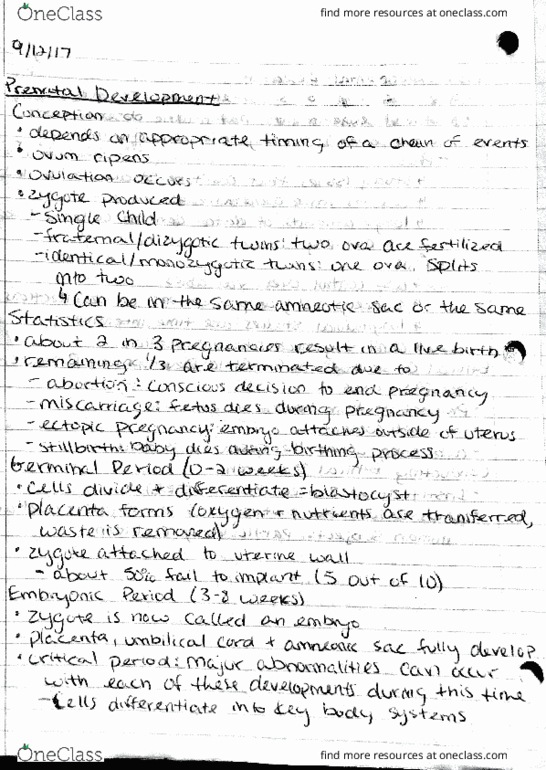 OneClass
find more resources at oneclass.com
9/12/17
Prenatal Development
Conception
• depends on appropriate timing of a chain of events
• ovum ripens
• ovulation occurs
• zygote produced
- Single Child
- fraternal/dizygotic twins: two ova are fertilized
- identical/monozygotic twins: one ova splits
into two
↳ Can be in the same amneotic sac or the same
Statistics
• about 2 in 3 pregnancies result in a live birth
• remaining 1/3 are terminated due to
- abortion: conscious decision to end pregnancy
- miscarriage: fetus dies during pregnancy
- ectopic pregnancy: embryo attaches outside of uterus
- stillbirth: baby dies during birthing process
Germinal Period (0-2 weeks)
• Cells divide + differentiate = blastocyst
• placenta forms (oxygen + nutrients are transferred,
waste is removed)
• zygote attached to uterine wall
- about 50% fail to implant (5 out of 10)
Embryonic Period (3-8 weeks)
• zygote is now called an embryo
• placenta, umbilical cord + amneonic sac fully develop
• critical period: major abnormalities can occur
with each of these developments during this time
- Cells differentiate into key body systems
OneClass
find more resources at oneclass.com